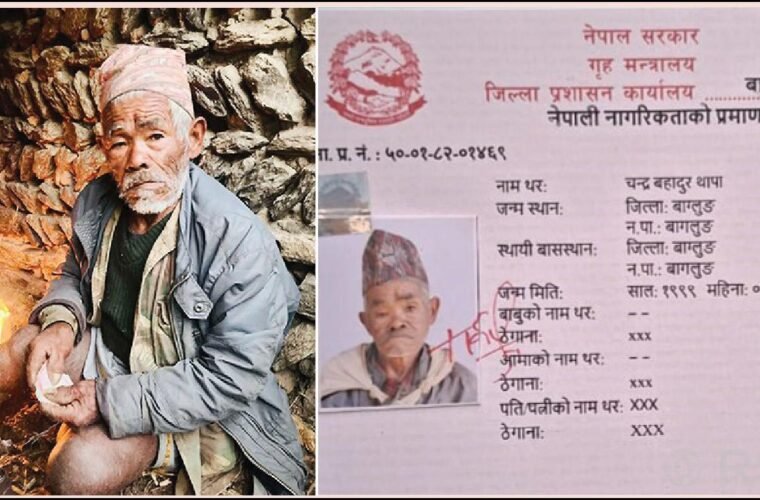 नेपाल सरकार
गृह मन्त्रालय
जिल्ला प्रशासन कार्यालय ........... बा
नेपाली नागरिकताको प्रमाण
ा. प्र. नं. : ५०-०१-८२-०१४६९
नाम थर: चन्द्र बहादुर थापा
जन्म स्थान: जिल्ला: बाग्लुङ
न.पा.: बागलुङ
स्थायी बासस्थान: जिल्ला: बाग्लुङ
न.पा.: बागलुङ
जन्म मिति: साल: १९९९ महिना: ०
बाबुको नाम थर: - -
ठेगाना: xxx
आमाको नाम थर: - -
ठेगाना: xxx
पति/पत्नीको नाम थर: XXX
ठेगाना: XXX